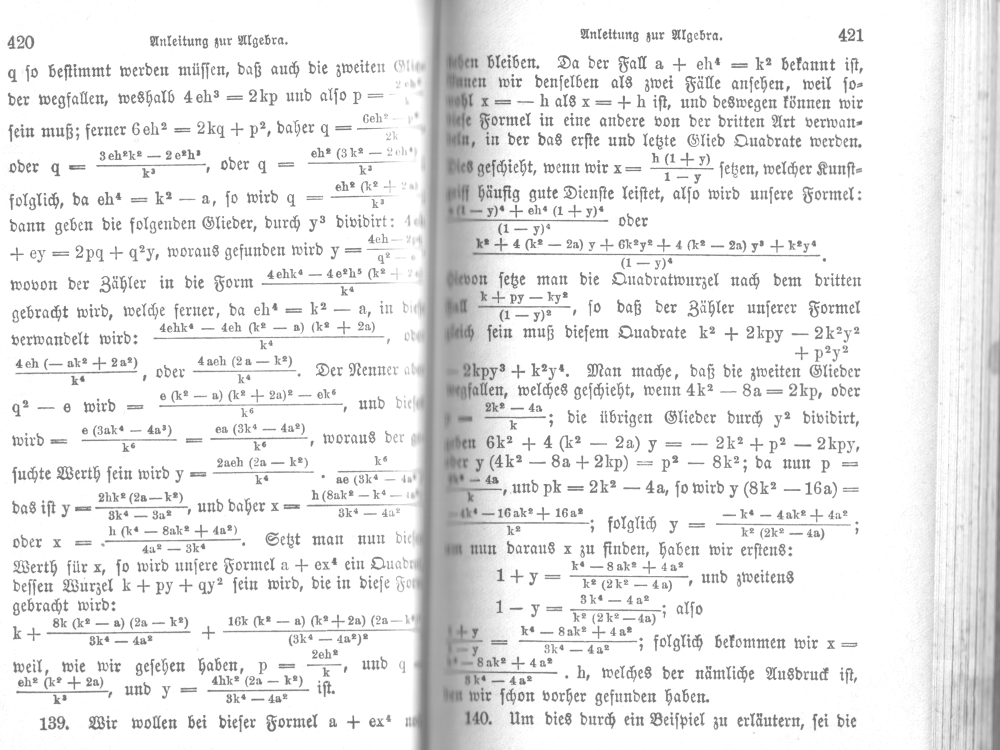 420 Anleitung zur Algebra.
q so bestimmt werden müssen, daß auch die zweiten
der wegfallen, weshalb 4 eh³ = 2kp und also p =
sein muß; ferner 6 eh² = 2kq + p², daher q =
oder q = (3 eh²k² — 2 e²h³)/k³, oder q = eh² (3 k² — 2 eh⁴)/k³
folglich, da eh⁴ = k² — a, so wird q = eh² (k² + 2a)/k³
dann geben die folgenden Glieder, durch y³ dividirt:
+ ey = 2pq + q²y, woraus gefunden wird y =
wovon der Zähler in die Form
gebracht wird, welche ferner, da eh⁴ = k² — a, in
verwandelt wird: 4ehk⁴ — 4eh (k² — a) (k² + 2a)/k⁴,
4 eh (— ak² + 2 a²)/k⁴, oder 4 aeh (2 a — k²)/k⁴. Der Nenner
q² — e wird = e (k² — a) (k² + 2a)² — ek⁶/k⁶, und
wird = e (3ak⁴ — 4a³)/k⁶ = ea (3k⁴ — 4a²)/k⁶, woraus der
suchte Werth sein wird y = 2aeh (2a — k²)/k⁴ .
das ist y = 2hk² (2a—k²)/3k⁴ — 3a², und daher x =
oder x = h (k⁴ — 8ak² + 4a²)/4a² — 3k⁴. Setzt man nun
Werth für x, so wird unsere Formel a + ex⁴ ein
dessen Wurzel k + py + qy² sein wird, die in diese
gebracht wird:
k + 8k (k² — a) (2a — k²)/3k⁴ — 4a² +
weil, wie wir gesehen haben, p = 2eh²/k, und q
eh² (k² + 2a)/k³, und y = 4hk² (2a — k²)/3k⁴ — 4a² ist.
139. Wir wollen bei dieser Formel a + ex⁴
Anleitung zur Algebra. 421
bleiben. Da der Fall a + eh⁴ = k² bekannt ist,
wir denselben als zwei Fälle ansehen, weil so=
x = — h als x = + h ist, und deswegen können wir
Formel in eine andere von der dritten Art verwan=
in der das erste und letzte Glied Quadrate werden.
geschieht, wenn wir x = h (1 + y)/1 — y setzen, welcher Kunst=
häufig gute Dienste leistet, also wird unsere Formel:
(1 — y)⁴ + eh⁴ (1 + y)⁴/(1 — y)⁴ oder
k² + 4 (k² — 2a) y + 6k²y² + 4 (k² — 2a) y³ + k²y⁴/(1 — y)⁴.
setze man die Quadratwurzel nach dem dritten
k + py — ky²/(1 — y)², so daß der Zähler unserer Formel
sein muß diesem Quadrate k² + 2kpy — 2k²y²
+ p²y²
— 2kpy³ + k²y⁴. Man mache, daß die zweiten Glieder
wegfallen, welches geschieht, wenn 4k² — 8a = 2kp, oder
= 2k² — 4a/k; die übrigen Glieder durch y² dividirt,
6k² + 4 (k² — 2a) y = — 2k² + p² — 2kpy,
y (4k² — 8a + 2kp) = p² — 8k²; da nun p =
und pk = 2k² — 4a, so wird y (8k² — 16a) =
— 16 ak² + 16 a²/k²; folglich y = — k⁴ — 4ak² + 4a²/k² (2k² — 4a);
nun daraus x zu finden, haben wir erstens:
1 + y = k⁴ — 8 ak² + 4 a²/k² (2 k² — 4 a), und zweitens
1 — y = 3 k⁴ — 4 a²/k² (2 k² — 4a); also
= k⁴ — 8ak² + 4 a²/3k⁴ — 4 a²; folglich bekommen wir x =
— 8 ak² + 4 a²/3 k⁴ — 4 a² . h, welches der nämliche Ausdruck ist,
wir schon vorher gefunden haben.
140. Um dies durch ein Beispiel zu erläutern, sei die